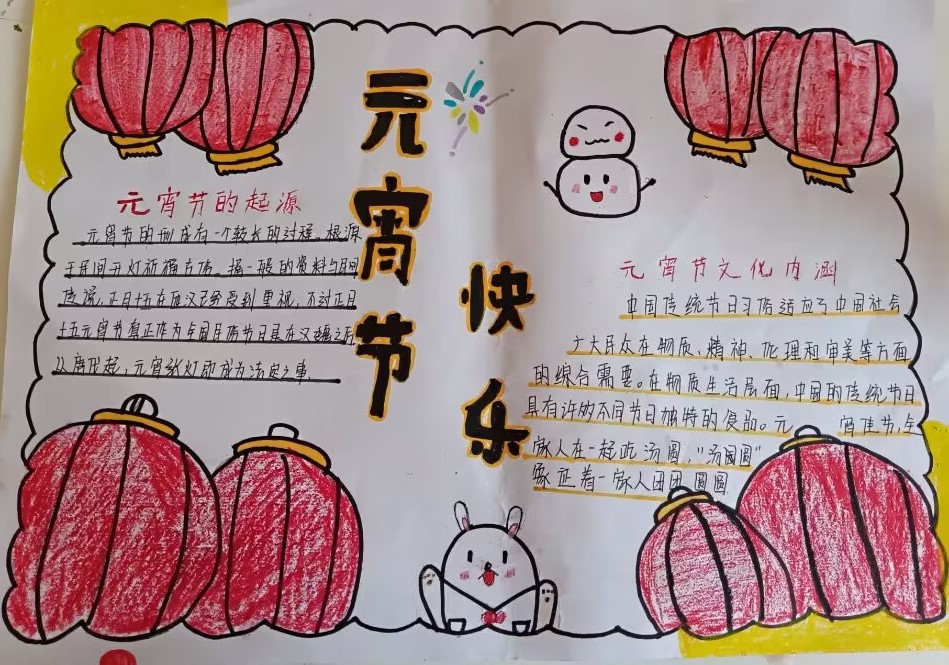 元宵节
快乐
元宵节的起源
元宵节的形成有一个较长的过程,根源
于民间开灯祈福古俗。据一般的资料与民间
传说,正月十五在西汉已经受到重视,不过正月
十五元宵节真正作为全国民俗节日是在汉魏之后
从唐代起,元宵张灯即成为法定之事
元宵节文化内涵
中国传统节日习俗适应了中国社会
广大民众在物质、精神、伦理和审美等方面
的综合需要。在物质生活层面,中国的传统节日
具有许多不同节日独特的食品。元 宵佳节,全
家人在一起吃汤圆,“汤圆圆”
象征着一家人团团圆圆